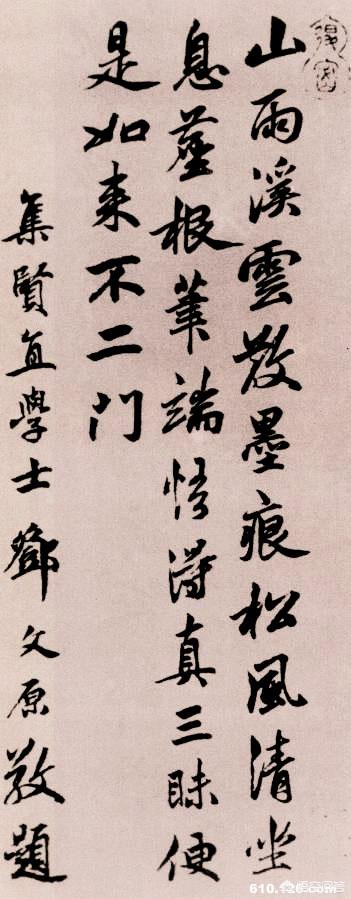 山雨溪雲散墨痕松風清坐
息塵根筆端悟得真三昧便
是如來不二門
集賢直學士鄧文原敬題
悟空问答
610.126.com